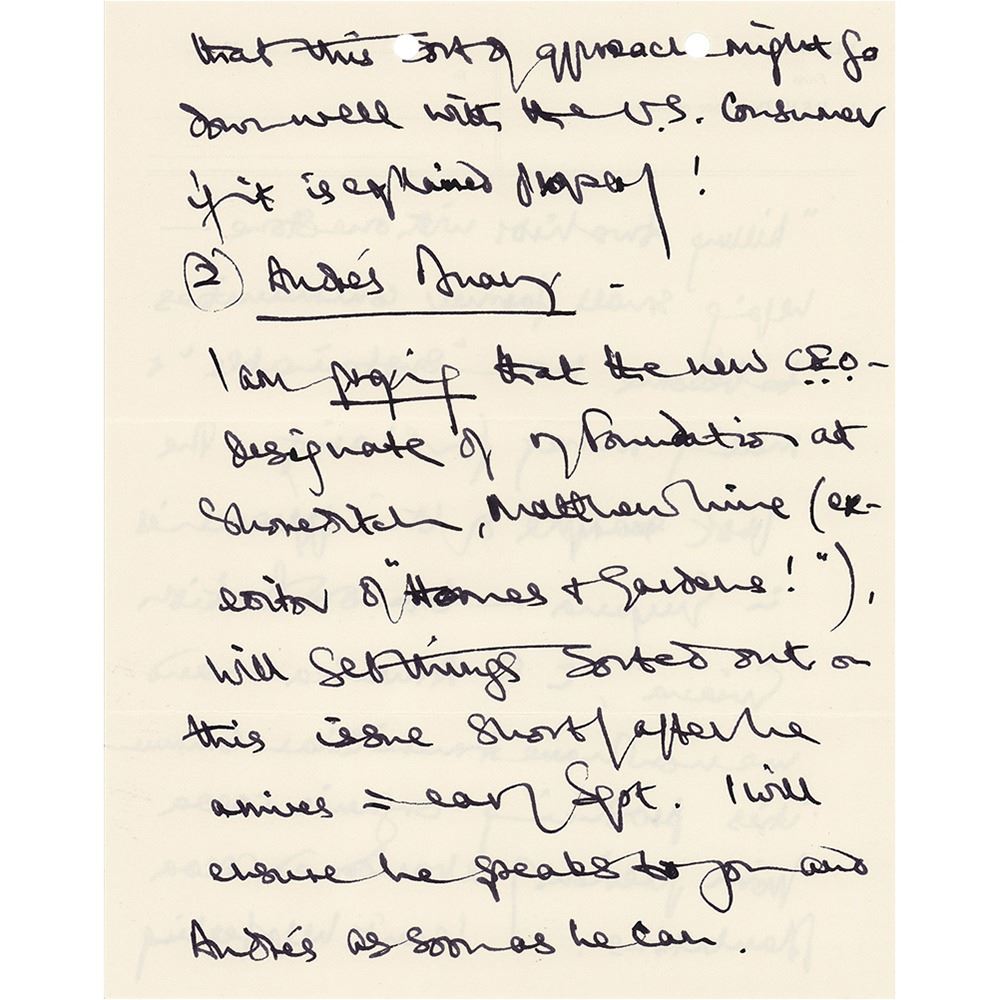 that this sort of approach might go
down well with the U.S. Consumer
if it is explained properly!
(2) Andrés Duany -
I am praying that the new C.E.O -
designate of my Foundation at
Shoreditch, Matthew Line (ex-
editor of "Homes & Gardens!"),
will get things sorted out on
this issue shortly after he
arrives = early Sept. I will
ensure he speaks to you and
Andrés as soon as he can.